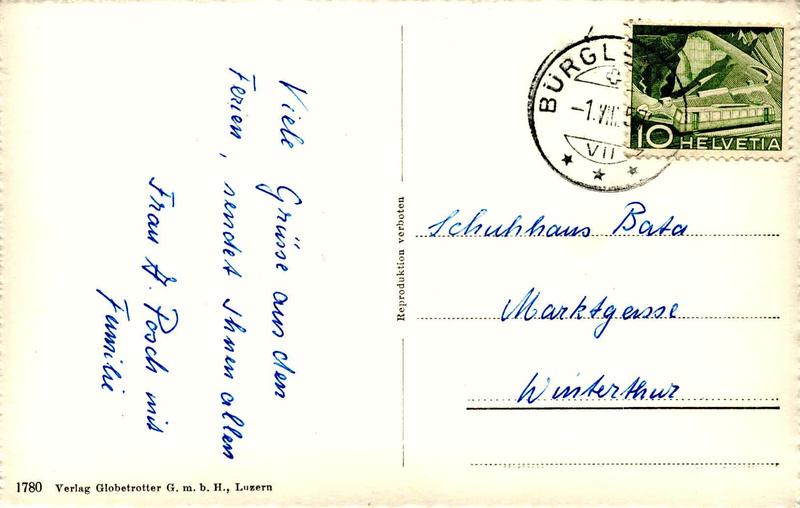 Viele Grüsse aus den
Ferien, sendet Ihnen allen
Frau H. Posch mit
Familie
Reproduktion verboten
1780 Verlag Globetrotter G. m. b. H., Luzern
BÜRGL
-1.VIII.5
VII
10 HELVETIA
Schuhhaus Bata
Marktgasse
Winterthur